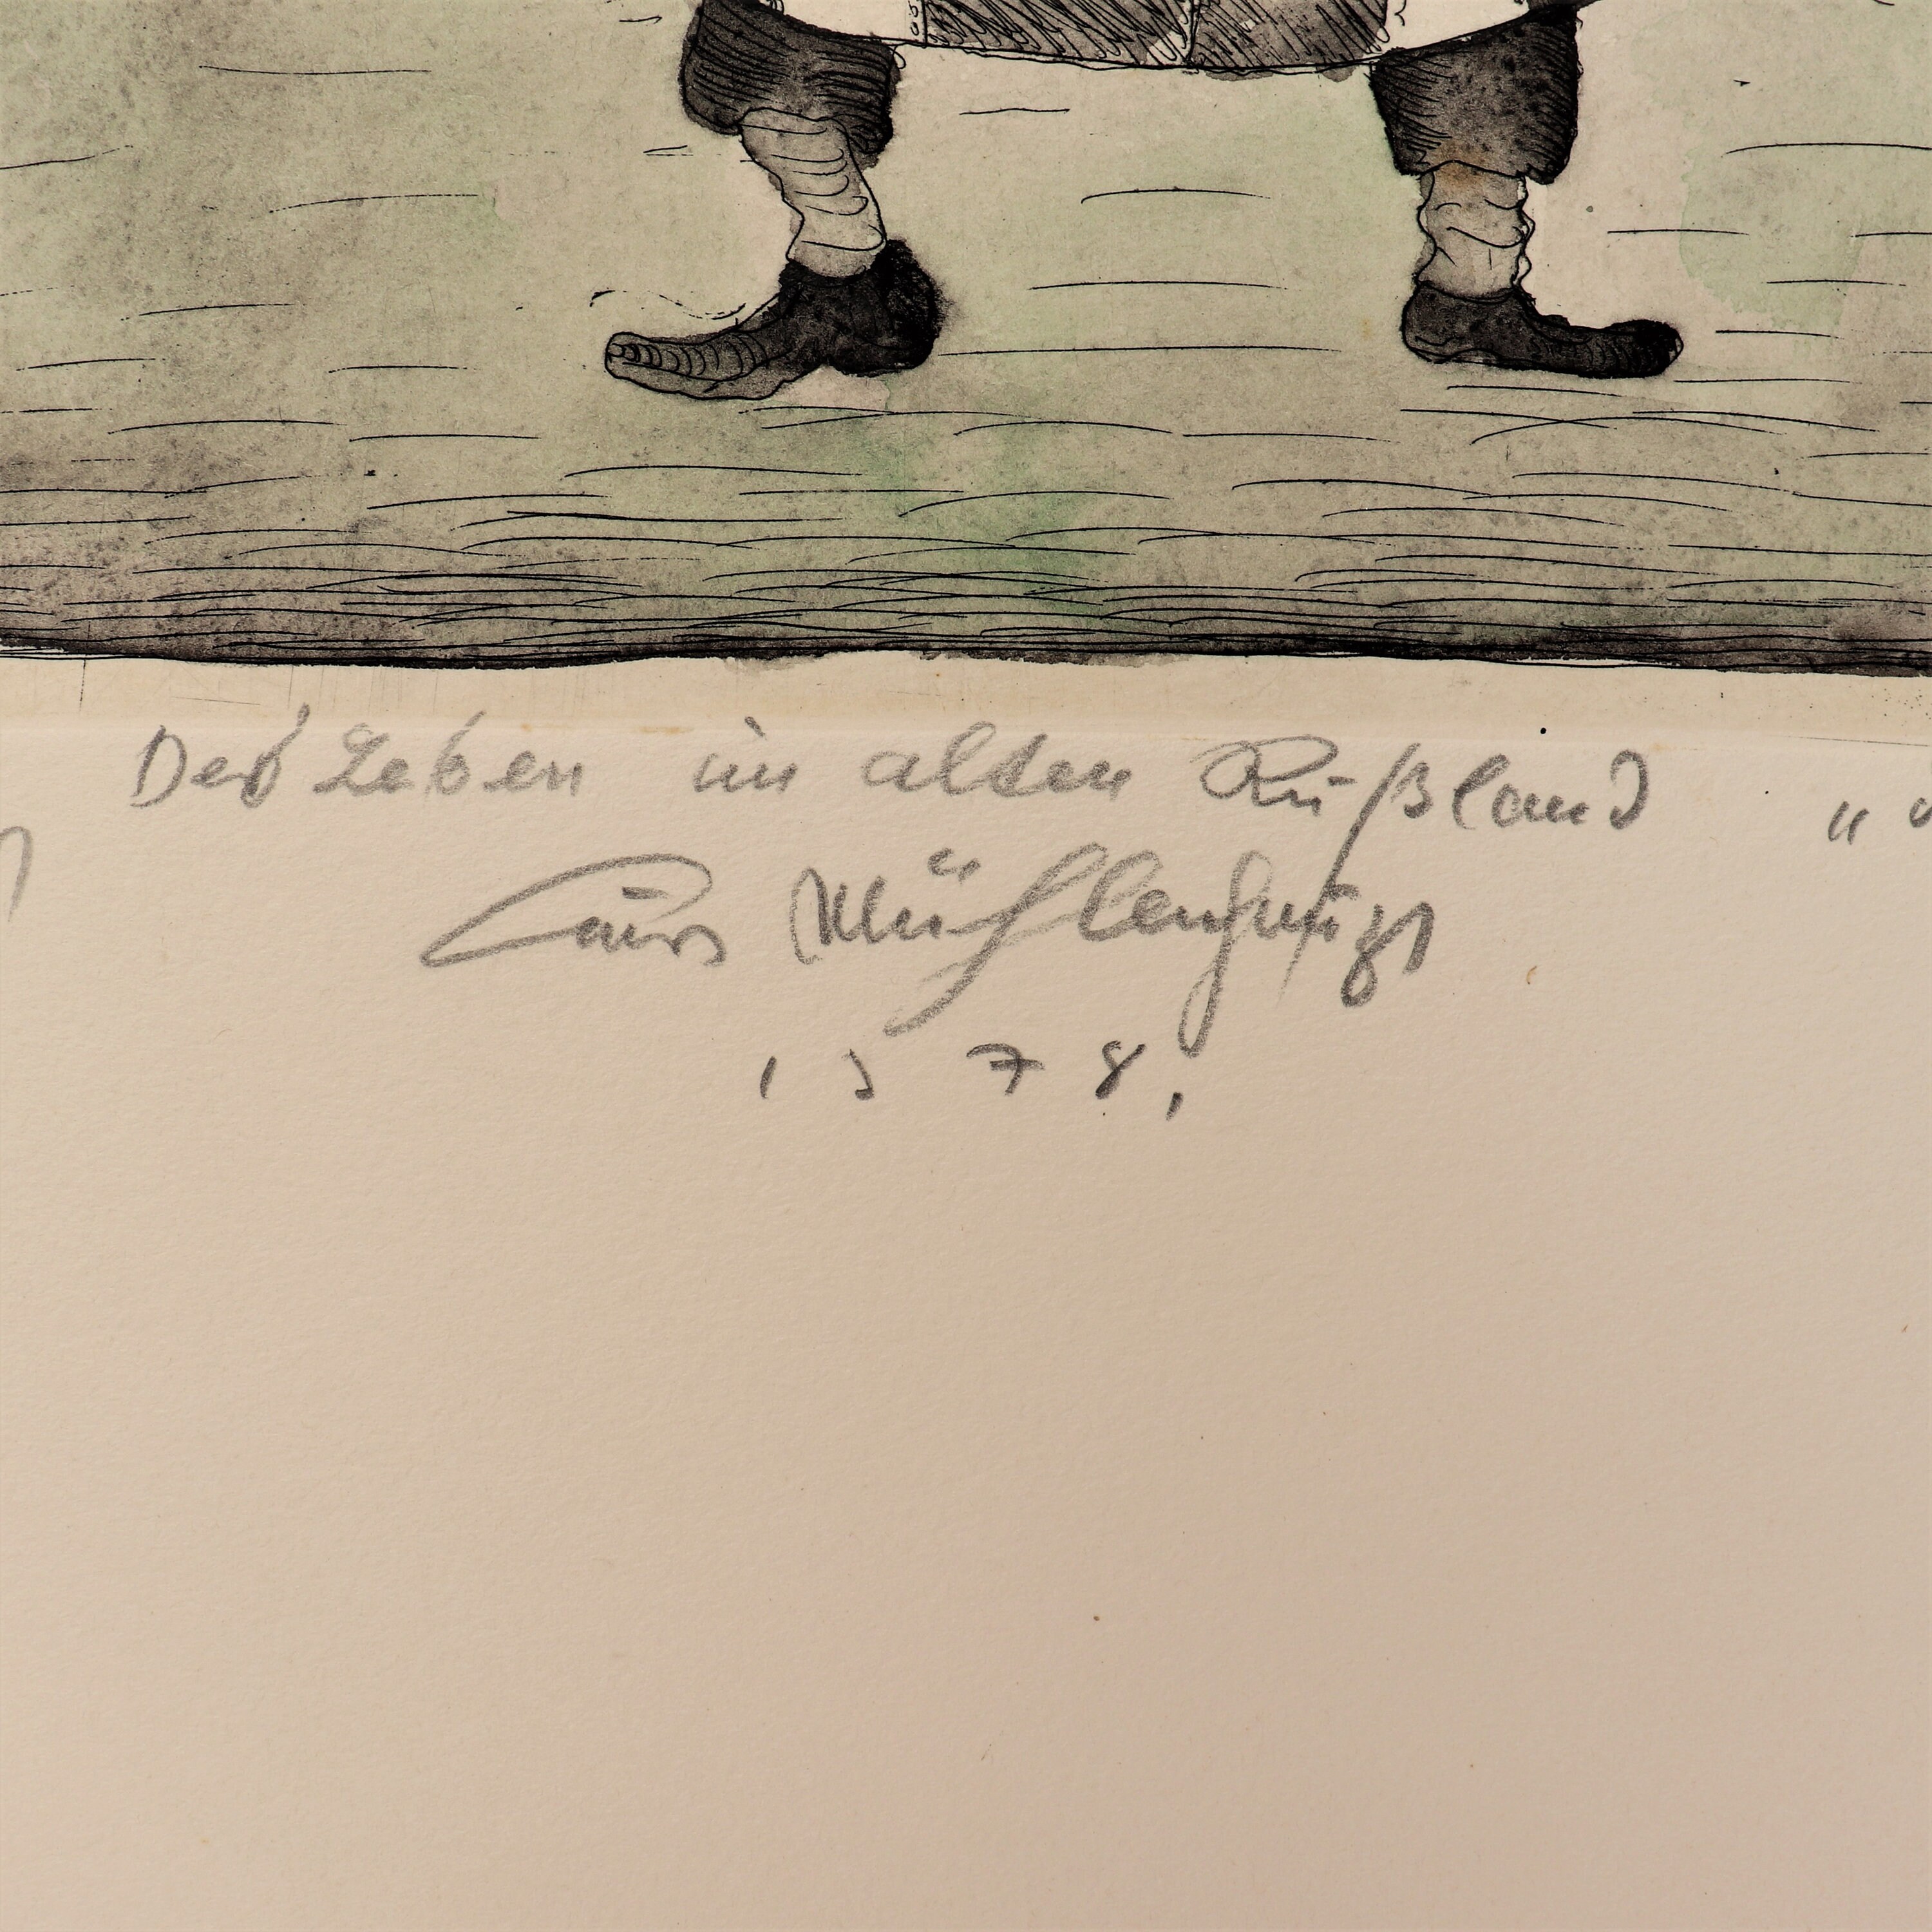 Das Leben im alten Rußland "
Curt Mühlenhaupt
1978.